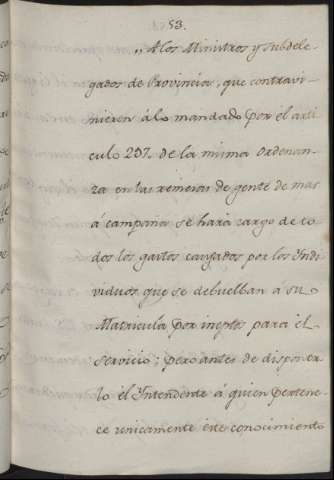 53.
,, A los Ministros y subdele-
gados de Provincia, que contravi-
nieren á lo mandado por el arti-
culo 237. de la misma ordenan-
za en las remesas de gente de mar
á campaña se hará cargo de to-
dos los gastos causados por los Indi-
viduos que se debuelban a su
Matricula por ineptos para el
servicio; pero antes de disponer
lo el Intendente á quien pertene-
ce unicamente este conocimiento